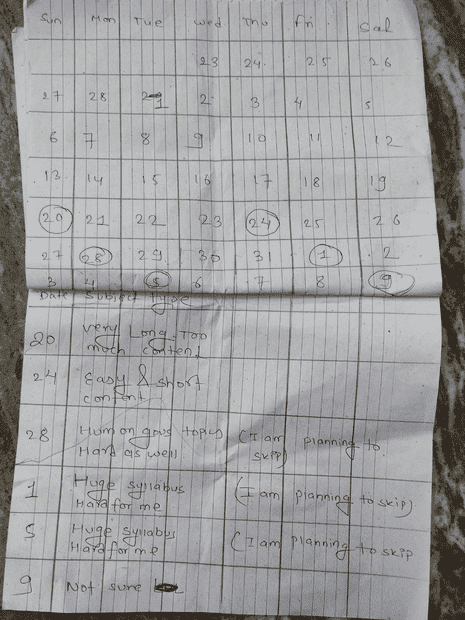 Sun Mon Tue Wed Thu Fri Sat
23 24 25 26
27 28 1 2 3 4 5
6 7 8 9 10 11 12
13 14 15 16 17 18 19
20 21 22 23 24 25 26
27 28 29 30 31 1 2
3 4 5 6 7 8 9
Date Subject Type
20 Very Long Too
much content
24 Easy & short
content
28 Humongous topics (I am planning to
Hard as well skip)
1 Huge syllabus (I am planning to skip)
Hard for me
5 Huge syllabus (I am planning to skip
Hard for me
9 Not sure